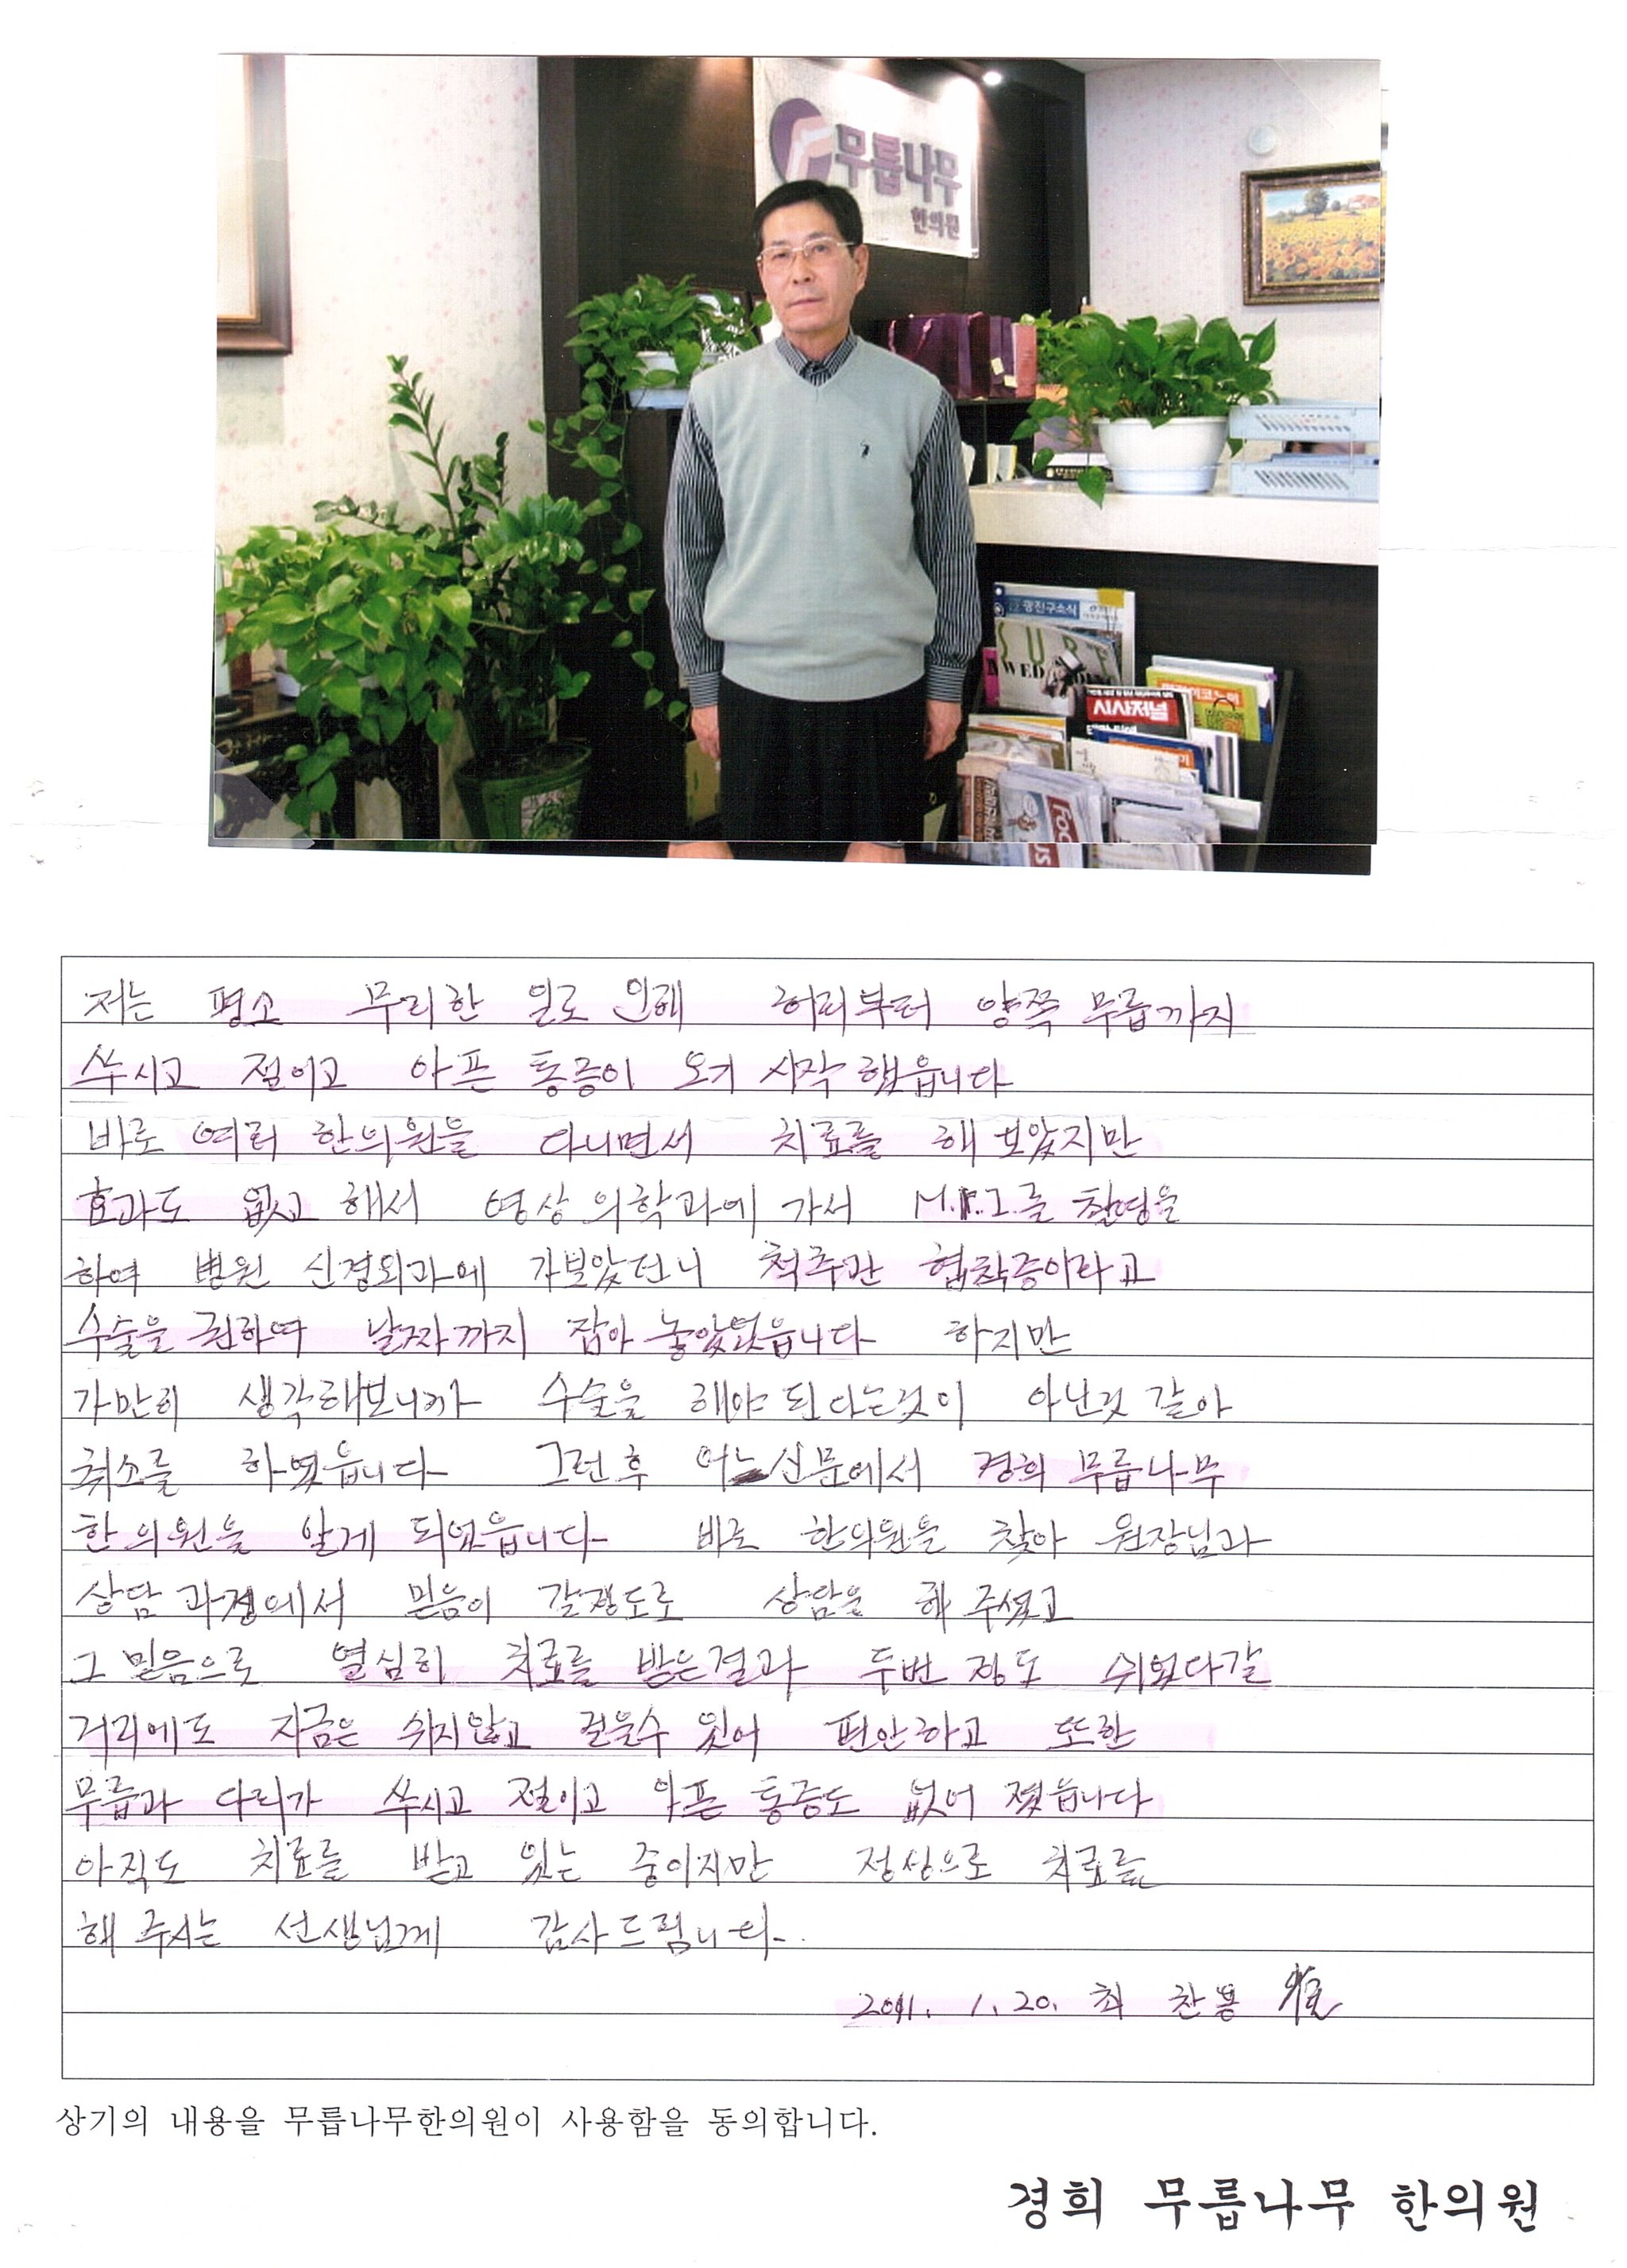 무릎나무
한의원
광진구소식
SURE
WED
시사저널
이코노미
Focus
저는 평소 무리한 일로 인해 허리부터 양쪽 무릎까지
쑤시고 절이고 아픈 통증이 오기 시작 했읍니다
바로 여러 한의원을 다니면서 치료를 해 보았지만
효과도 없고 해서 영상의학과에 가서 M.R.I.를 촬영을
하여 병원 신경외과에 가보았더니 척추관 협착증이라고
수술을 권하여 날짜까지 잡아 놓았었읍니다 하지만
가만히 생각해보니까 수술을 해야 된다는것이 아닌것 같아
취소를 하였읍니다 그런후 어느신문에서 경희 무릎나무
한의원을 알게 되었읍니다 바로 한의원을 찾아 원장님과
상담 과정에서 믿음이 갈정도로 상담을 해 주셨고
그 믿음으로 열심히 치료를 받은결과 두번 정도 쉬었다갈
거리에도 지금은 쉬지않고 걸을수 있어 편안하고 또한
무릎과 다리가 쑤시고 절이고 아픈 통증도 없어 졌읍니다
아직도 치료를 받고 있는 중이지만 정성으로 치료를
해 주시는 선생님께 감사드립니다.
2011. 1. 20. 최 찬용
상기의 내용을 무릎나무한의원이 사용함을 동의합니다.
경희 무릎나무 한의원